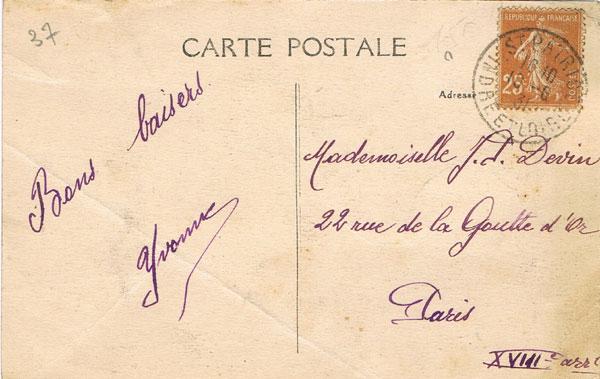 37
CARTE POSTALE
REPUBLIQUE FRANÇAISE
25c
INDRE ET LOIRE
Adresse
Bons baisers
Yvonne
Mademoiselle J.d. Devin
22 rue de la Goutte d'Or
Paris
XVIIIe arrt